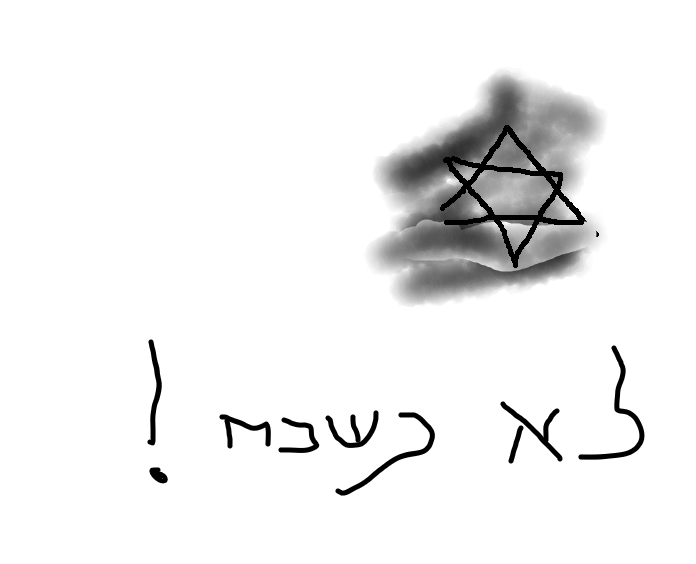 לא נשכח!